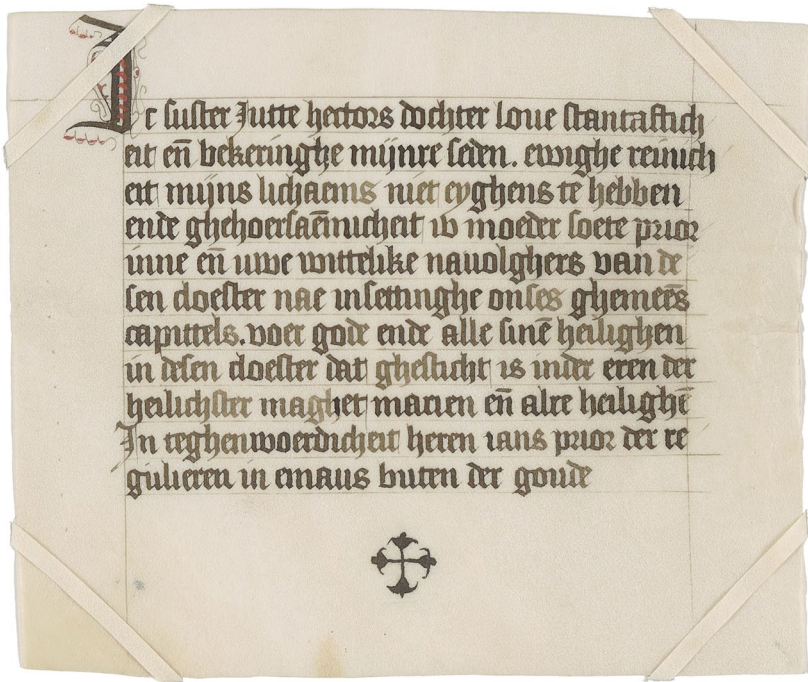 Ic suster Jutte hectors dochter loue stantaftich
eit en̄ bekeringhe mijnre seden. ewighe reinich
eit mijns lichaems niet eyghens te hebben
ende ghehoersaēmicheit iv moeder soete prior
inne en̄ uwe wittelike nauolghers van de
sen cloester nae insettinghe onses ghemeēs
capittels. voer gode ende alle sinē heilighen
in desen cloester dat ghesticht is inder eren der
heilichster maghet marien en̄ alre heilighē
In teghenwoerdicheit heren ians prior der re
gulieren in emaus buten der goude